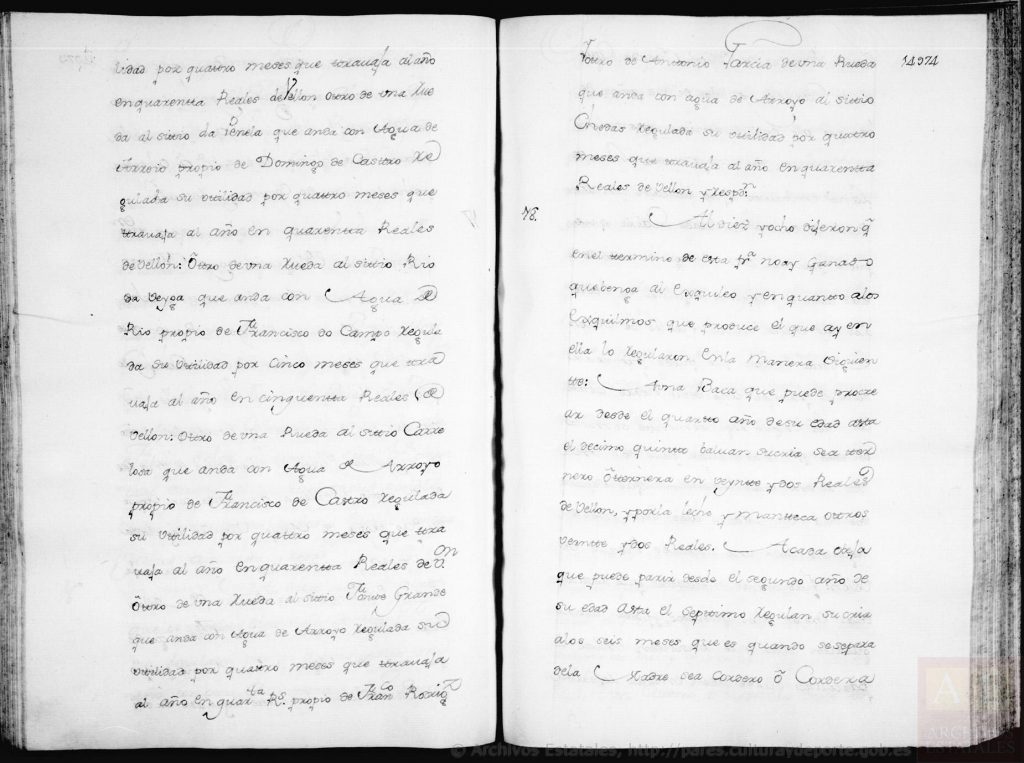 lidad por quattro meses que travaja al año
en quarentta Reales de Vellon Ottro de una Rue
da al sittio da Penela que anda con Agua de
Arroio propio de Domingo de Casttro Re
gulada su Utilidad por quattro meses que
ttravaja al año en quarentta Reales
de Vellon: Ottro de una Rueda al sittio Rio
da Veyga que anda con Agua de
Rio propio de Francisco do Campo Regula
da su Utilidad por Cinco meses que ttra
vaja al año en cinquentta Reales de
Vellon: Ottro de una Rueda al sittio Carre
losa que anda con Agua de Arroyo
propio de Francisco de Castro Regulada
su Utilidad por quattro meses que ttra
vaja al año en quarentta Reales de V.on
Ottro de una Rueda al sittio Fonte Grande
que anda con Agua de Arroyo Regulada su
Utilidad por quattro meses que ttravaja
al año en quar.ta R.s propio de Fran.co Rorig.z
14374
Yottro de Antonio Garcia de una Rueda
que anda con agua de Arroyo al sittio
Regulada su Utilidad por quattro
meses que travaja al año en quarentta
Reales de Vellon y respd.n
18.
Al diez y ocho dijeron q
en el termino de esta fra no ay Ganado
que venga al Esquileo y en quantto alos
Esquilmos que produce el que ay en
ella lo Regularon En la manera Siguien
tte: A una Baca que puede procre
ar desde el quartto año de su edad asta
el decimo quintto baluan su cria sea tter
nero ô tternera en veyntte y dos Reales
de Vellon, y por la leche y Mantteca ottros
veintte y dos Reales. A cada obeja
que puede parir desde el segundo año de
su edad Asta el septtimo Regulan su cria
alos seis meses que es quando se separa
dela Madre sea Cordero ô Cordera
© Archivos Estatales, http://pares.culturaydeporte.gob.es
ARCHIVOS
ESTATALES